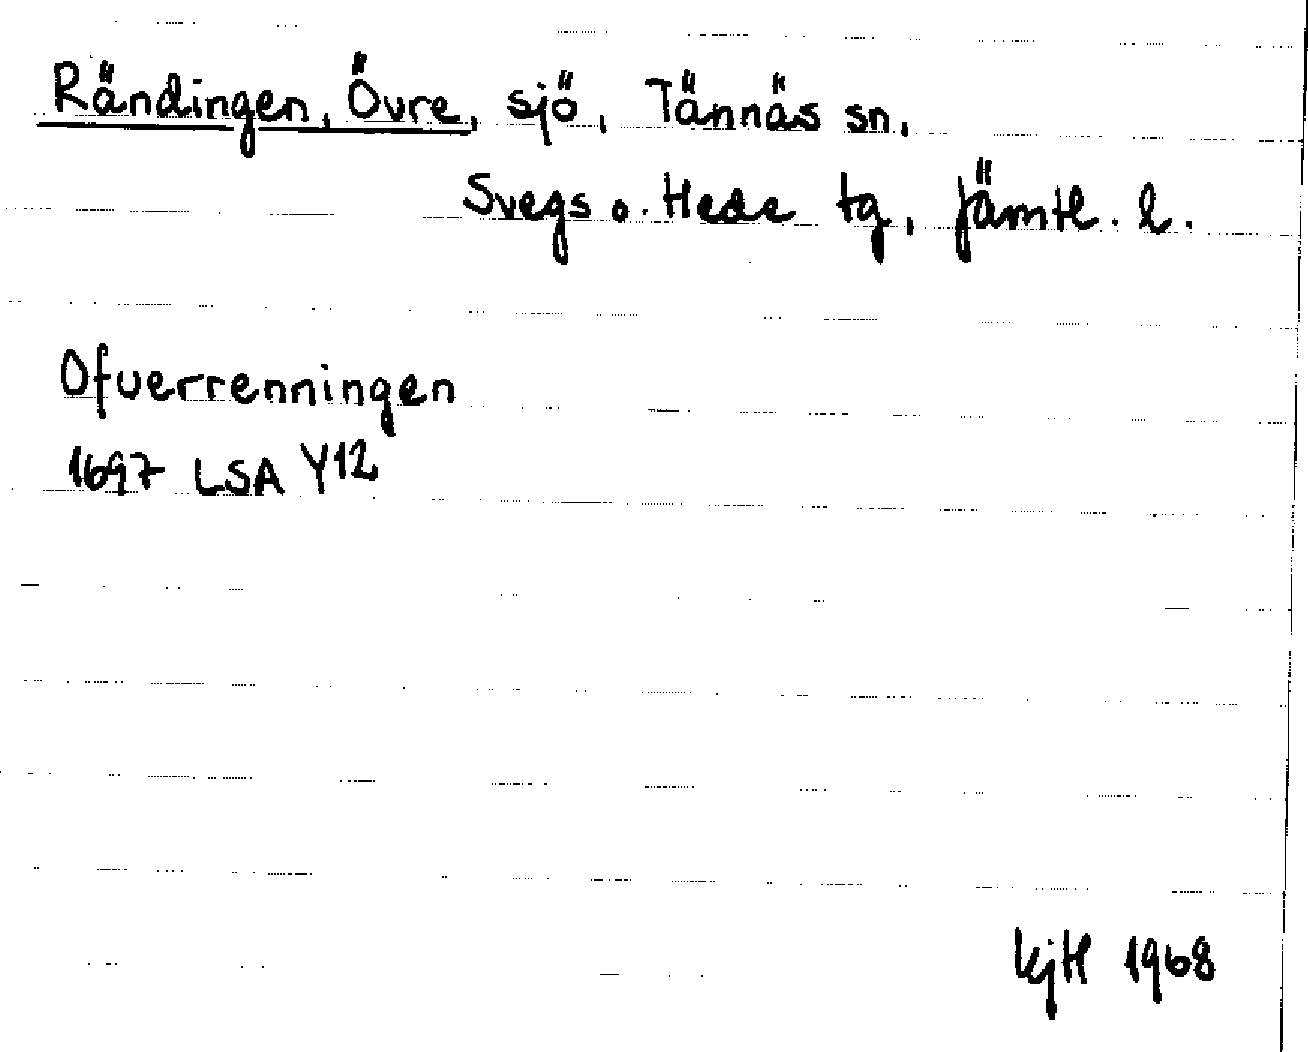 Rändingen, Övre, sjö, Tännäs sn.
Svegs o. Hede tg, Jämtl. l.
Ofverrenningen
1697 LSA Y12
KjH 1968